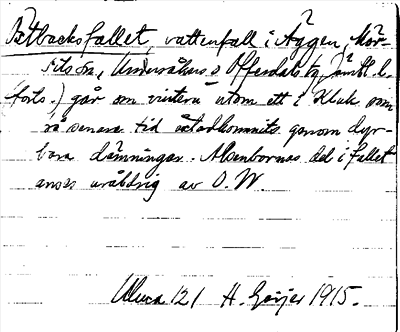 Pålbacksfallet, vattenfall i Äggen, Mör-
sils sn, Undersåkers o Offerdals tg, Jämtl. l.
(forts.) går om vintern utom ett i Kluk som
på senare tid åstadkommits genom dyr-
bara dämningar. Alsenbornas del i fallet
anses uråldrig av O. W.
Uluca 121 H. Geijer 1915.